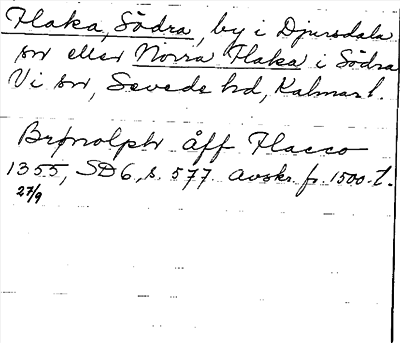 Flaka, Södra, by i Djursdala
sn eller Norra Flaka i Södra
Vi sn, Sevede hd, Kalmar l.
Brynolphr åff Flacco
1355, SD 6, s. 577. Avskr. fr. 1500-t.
27/9